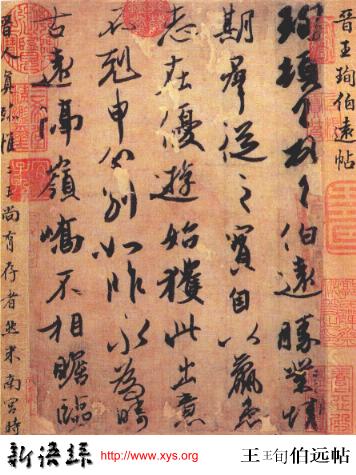 晉王珣伯遠帖
珣頓首頓首伯遠勝業情
期羣從之寶自以羸患
志在優遊始獲此出意
不剋申分別如昨永為疇
古遠隔嶺嶠不相瞻臨
晉人真跡惟二王尚有存者然米南宮時
新語絲 http://www.xys.org/ 王王旬伯远帖